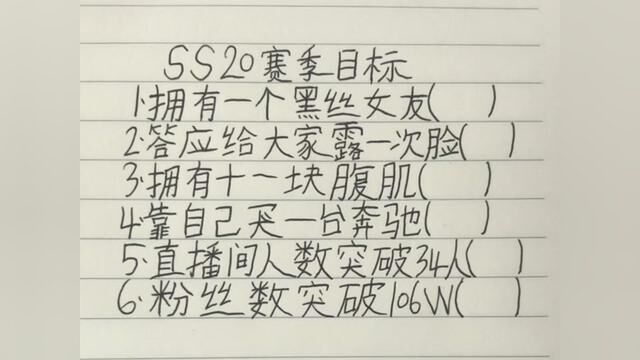 SS20赛季目标
1·拥有一个黑丝女友(  )
2·答应给大家露一次脸(  )
3·拥有十一块腹肌(  )
4·靠自己买一台奔驰(  )
5·直播间人数突破34人(  )
6·粉丝数突破106W(  )